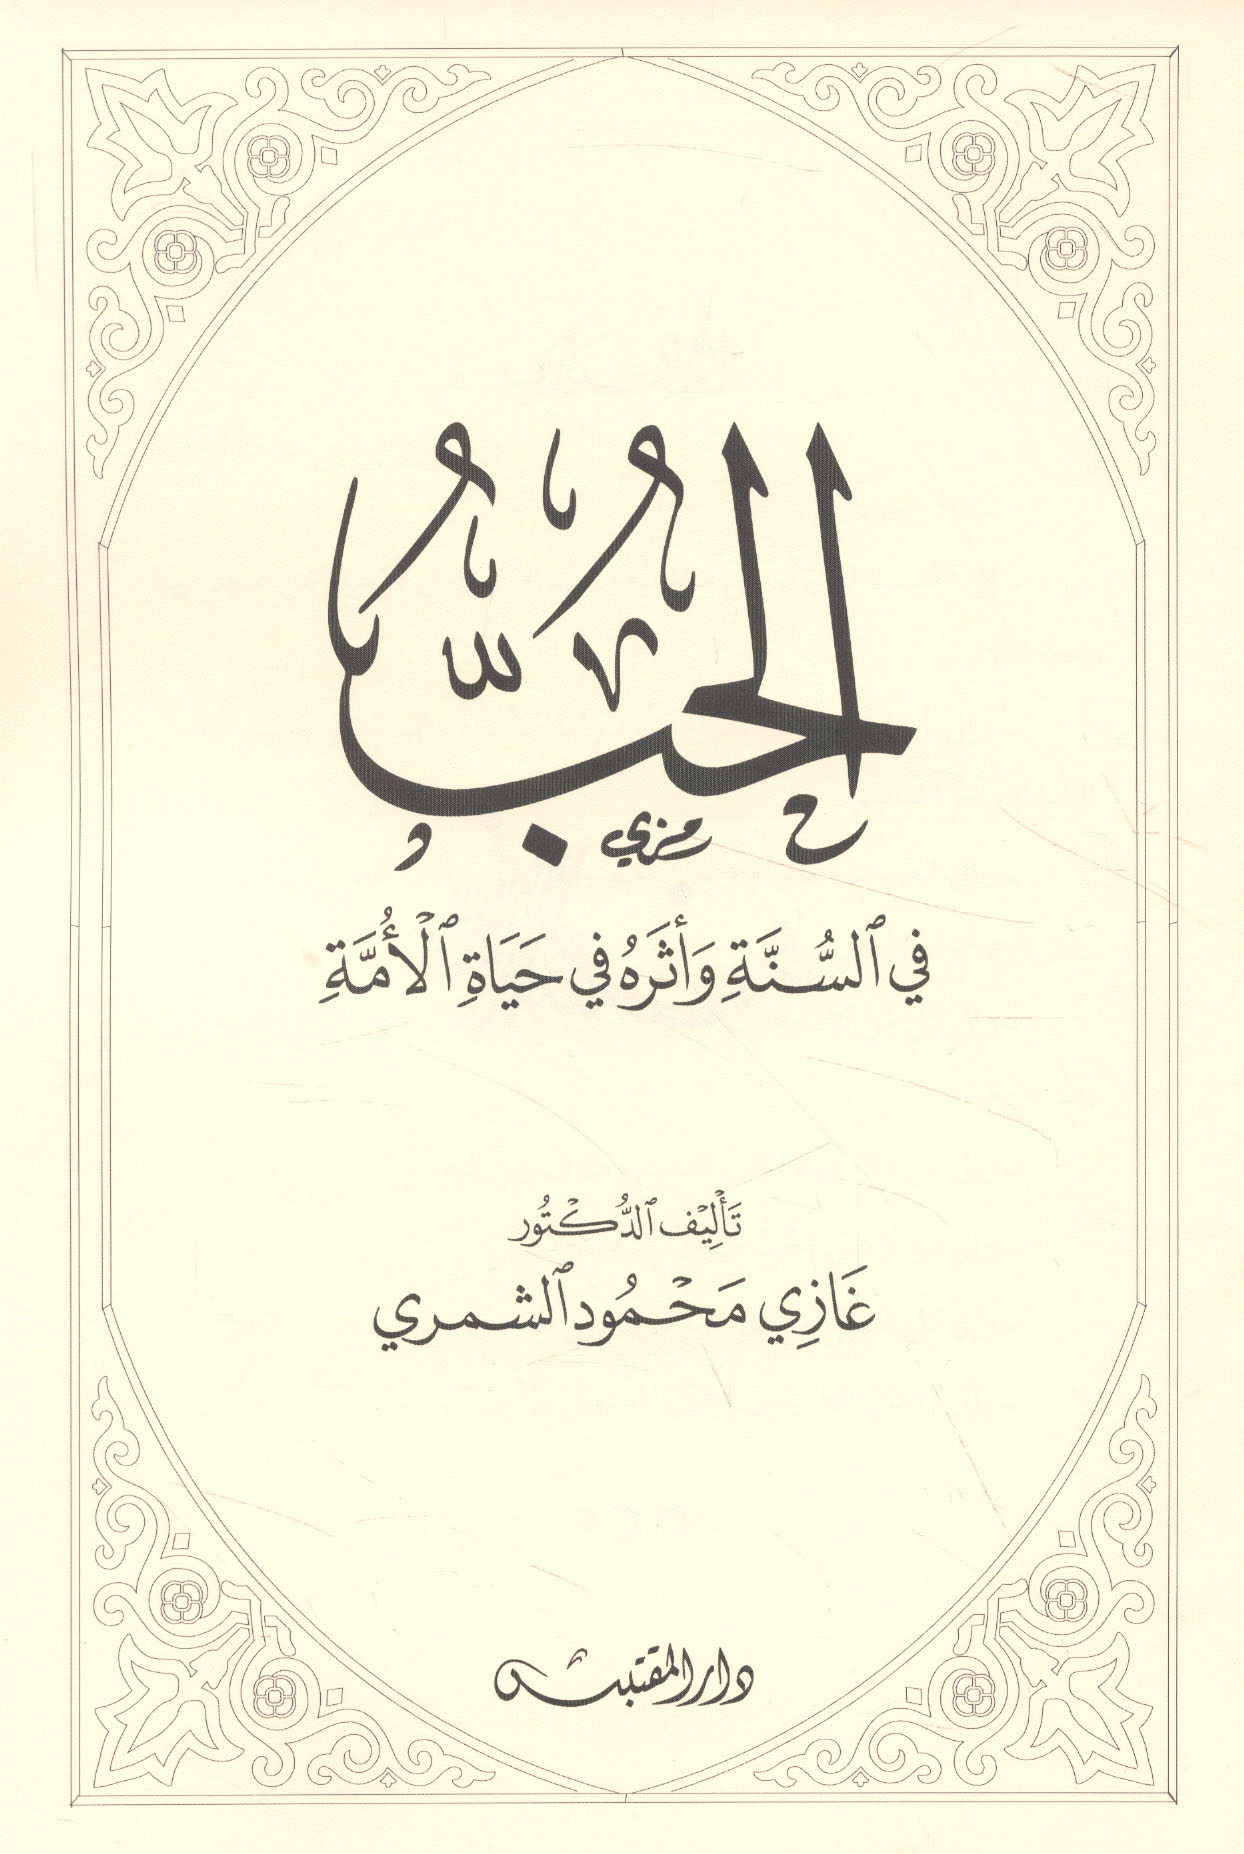 الحُبُّ
رمزي
في ٱلسُّنَّةِ وَأثَرَهُ في حَيَاةِ ٱلْأُمَّةِ
تَأْلِيْف ٱلدُّكْتُور
غَازِي مَحْمُود ٱلشمري
دار المقتبس